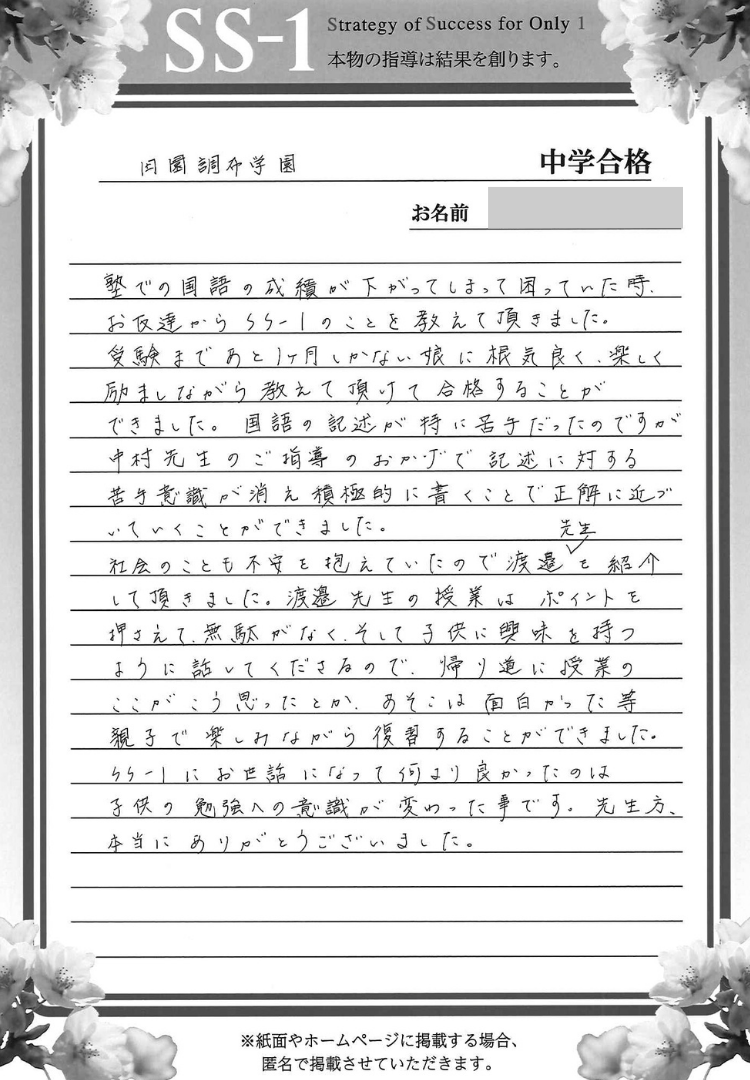 SS-1
Strategy of Success for Only 1
本物の指導は結果を創ります。
田園調布学園 中学合格
お名前
塾での国語の成績が下がってしまって困っていた時、
お友達からSS-1のことを教えて頂きました。
受験まであと1ヶ月しかない娘に根気良く、楽しく
励ましながら教えて頂けて合格することが
できました。国語の記述が特に苦手だったのですが
中村先生のご指導のおかげで記述に対する
苦手意識が消え積極的に書くことで正解に近づ
いていくことができました。
先生
社会のことも不安を抱えていたので渡邉を紹介
して頂きました。渡邉先生の授業はポイントを
押さえて、無駄がなく、そして子供に興味を持つ
ように話してくださるので、帰り道に授業の
ここがこう思ったとか、あそこは面白かった等
親子で楽しみながら復習することができました。
SS-1にお世話になって何より良かったのは
子供の勉強への意識が変わった事です。先生方、
本当にありがとうございました。
※紙面やホームページに掲載する場合、
匿名で掲載させていただきます。